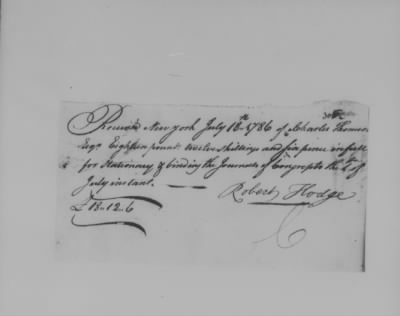 Received New york July 18th 1786 of Charles Thomson
Esqr Eighteen pounds twelve shillings and six pence in full
for Stationary & binding the Journals of Congress to the 4th of
July instant.
Robert Hodge
£ 18-12-6